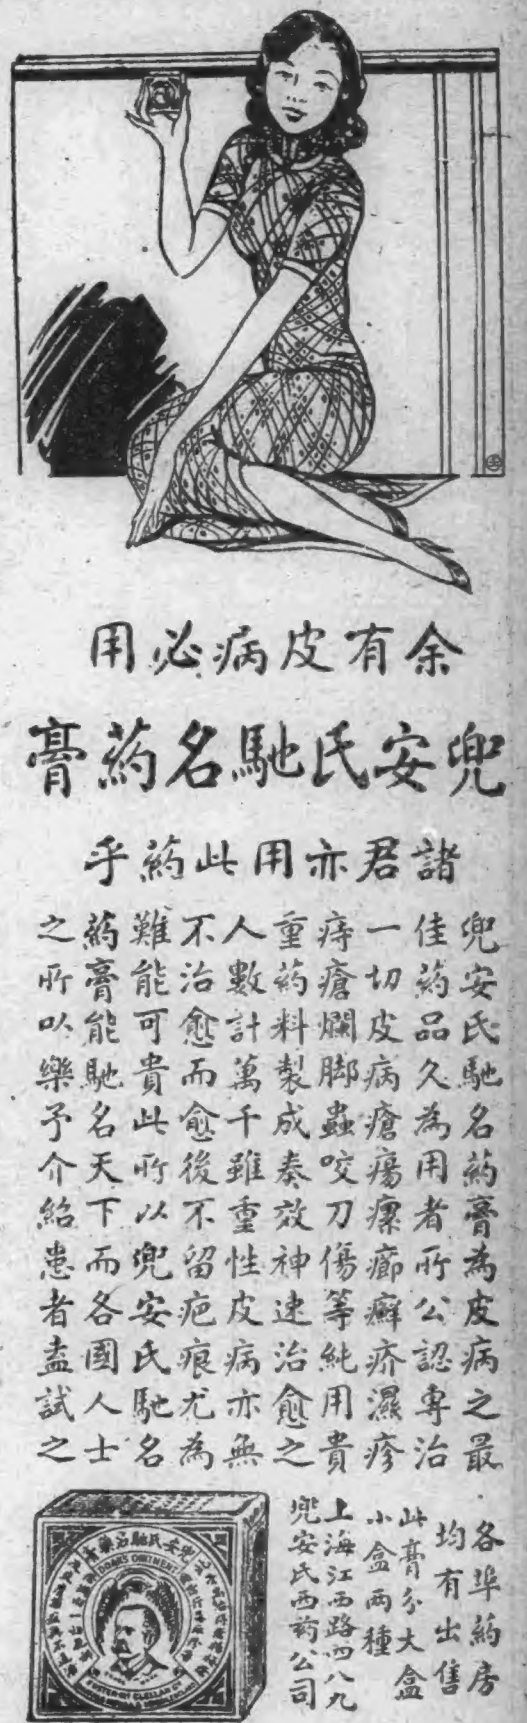 余有皮病必用
兜安氏馳名药膏
諸君亦用此药乎
兜安氏馳名药膏為皮病之最
佳药品久為用者所公認專治
一切皮病瘡瘍瘰癤癬疥濕疹
痔瘡爛脚蟲咬刀傷等純用貴
重药料製成奏效神速治愈之
人數計萬千雖重性皮病亦無
不治愈而愈後不留疤痕尤為
難能可貴此所以兜安氏馳名
药膏能馳名天下而各國人士
之所以樂予介紹患者盍試之
各埠药房
均有出售
此膏分大盒
小盒兩種
上海江西路四八九
兜安氏西药公司
DOAN'S OINTMENT
FOSTER-McCLELLAN CY